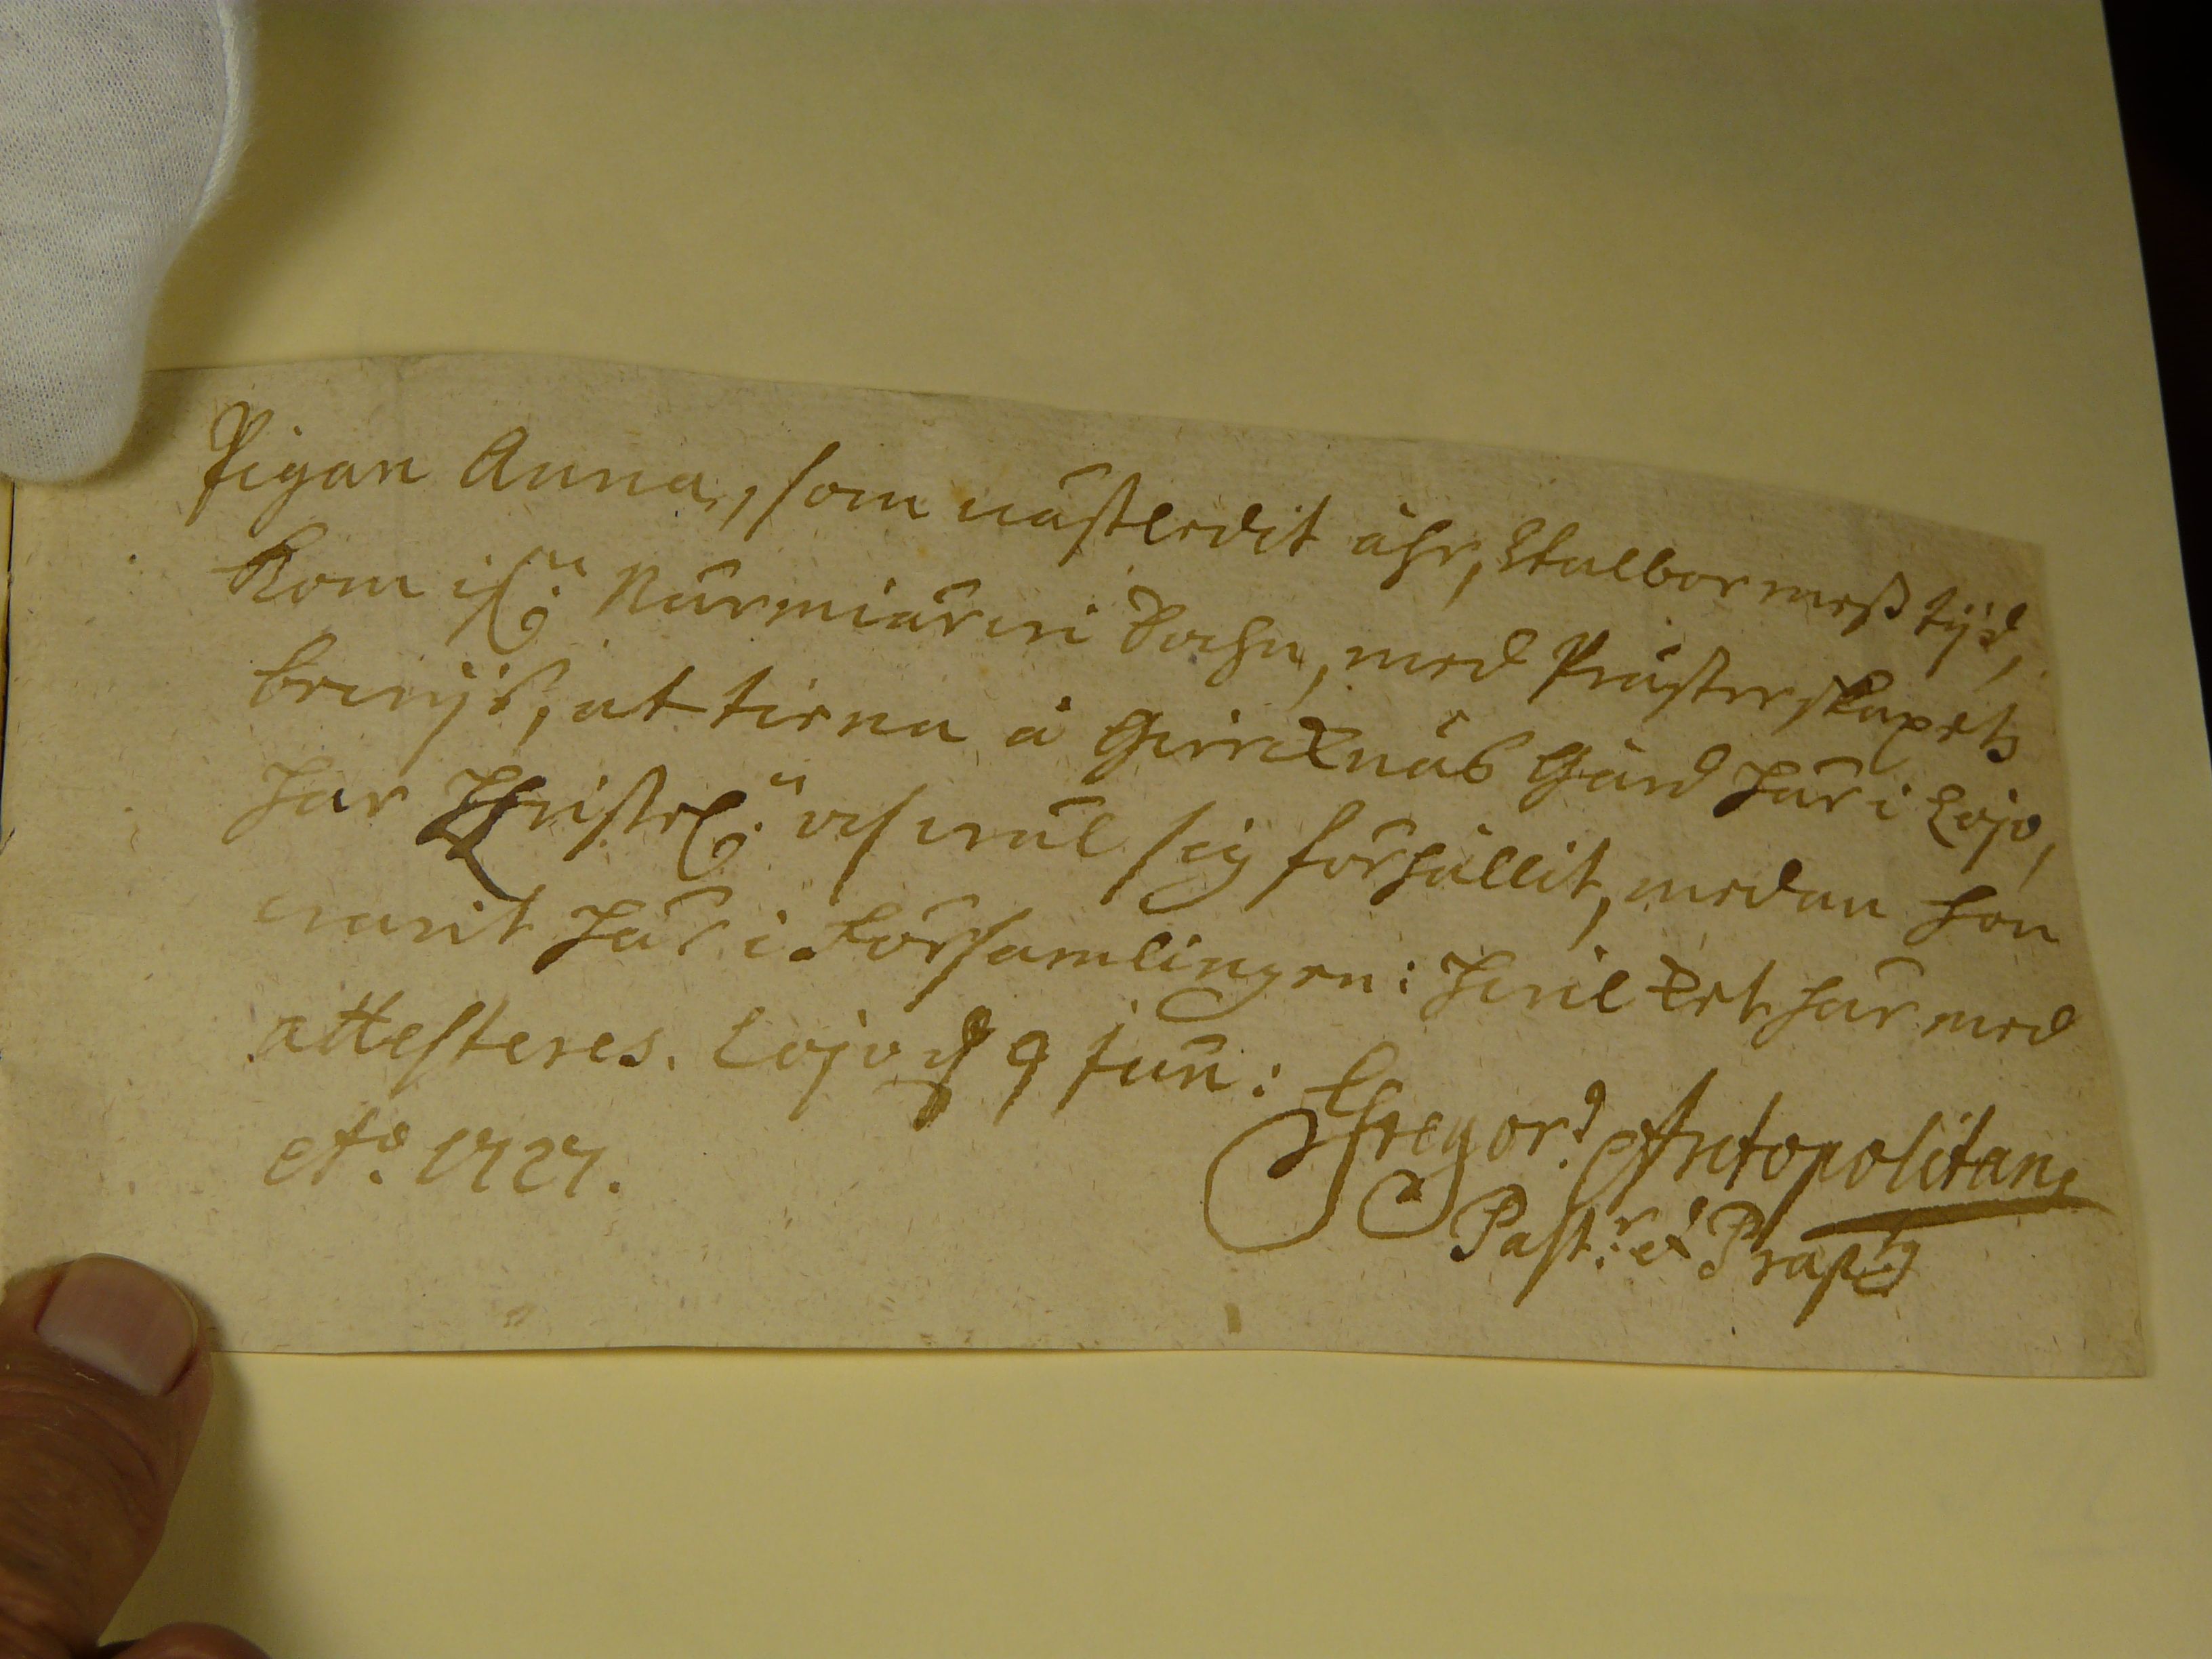 Pigan Anna, som nästledit åhr, Walbormeß tijd,
kom ifrn Nurmiärwi Sochn, med Prästerskapetz
bewijs, at tiena å Gierdznäs Gård här i Lojo,
har Christel:n och wäl sig förhållit, medan hon
warit här i Församlingen: Hwilket här med
attesteres. Lojo d 9 jun:
Ao. 1727.
Gregor9 Arctopolitan9
Past:r et Præp:tg